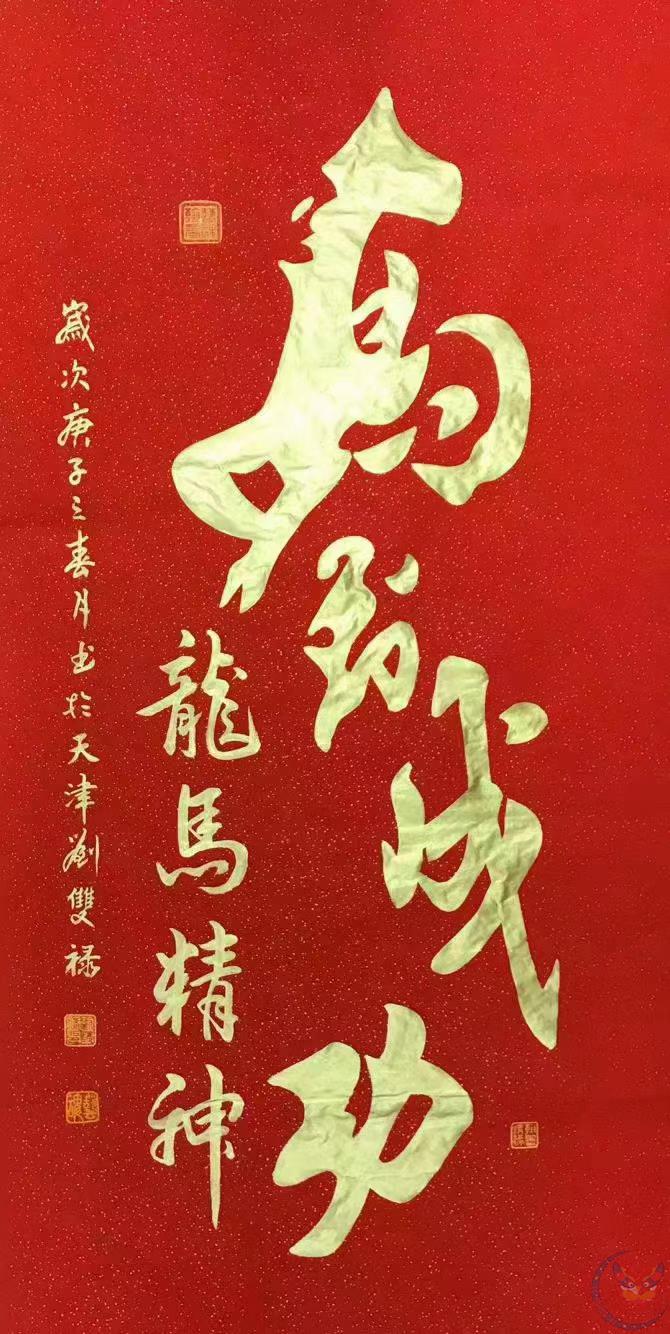 馬到成功
龍馬精神
歲次庚子之春月书於天津劉雙祿